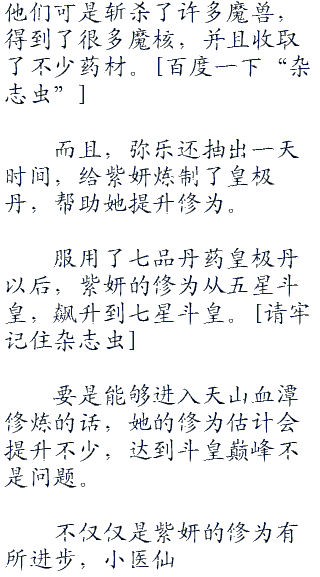 他们可是斩杀了许多魔兽，
得到了很多魔核，并且收取
了不少药材。[百度一下“杂
志虫”]
而且，弥乐还抽出一天
时间，给紫妍炼制了皇极
丹，帮助她提升修为。
服用了七品丹药皇极丹
以后，紫妍的修为从五星斗
皇，飙升到七星斗皇。[请牢
记住杂志虫]
要是能够进入天山血潭
修炼的话，她的修为估计会
提升不少，达到斗皇巅峰不
是问题。
不仅仅是紫妍的修为有
所进步，小医仙